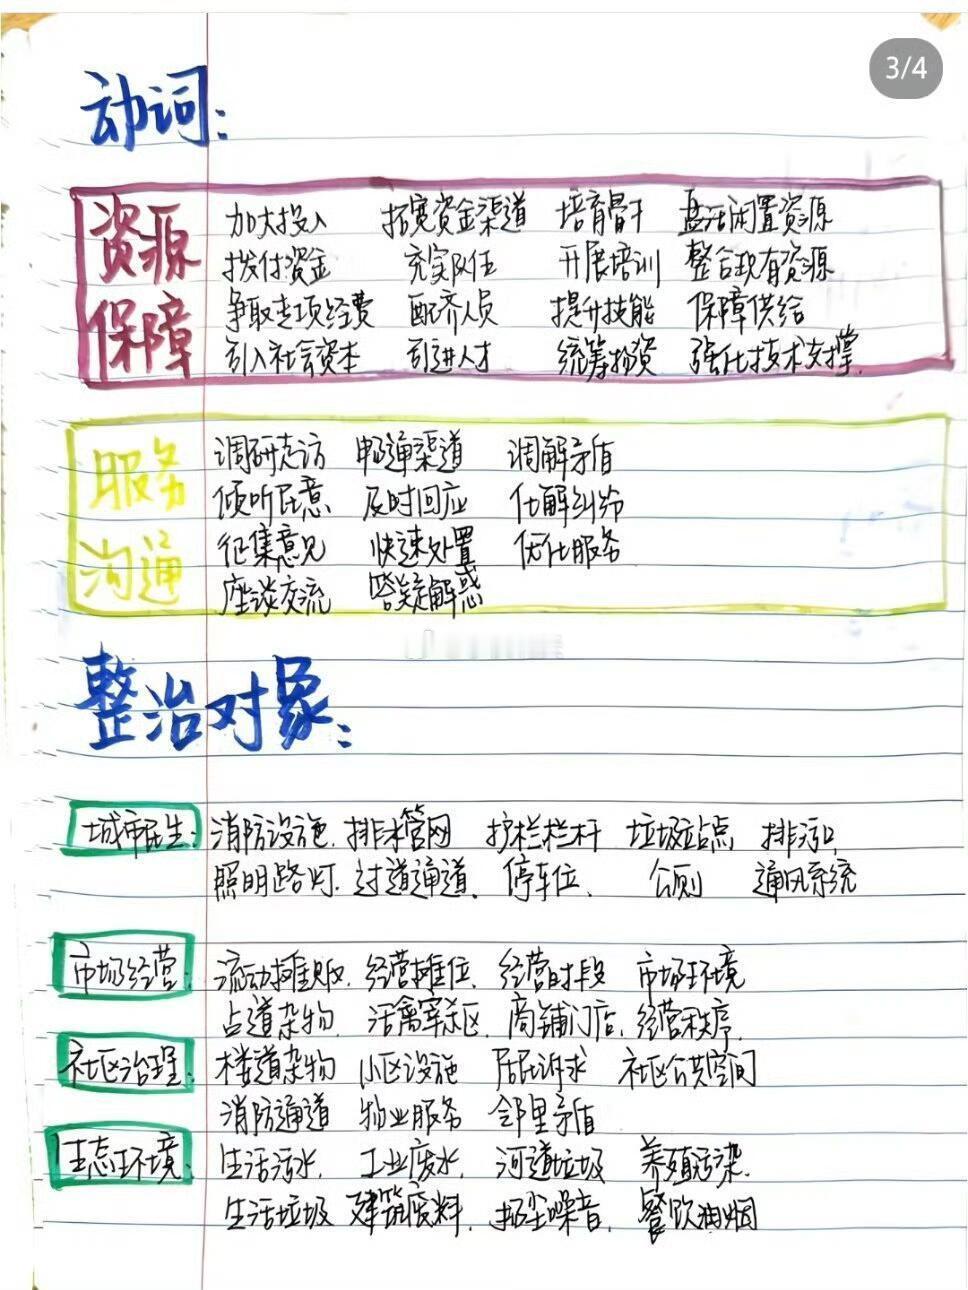 3/4
动词:
资源保障
加大投入 拓宽资金渠道 培育骨干 盘活闲置资源
拨付资金 充实队伍 开展培训 整合现有资源
争取专项经费 配齐人员 提升技能 保障供给
引入社会资本 引进人才 统筹物资 强化技术支撑.
服务沟通
调研走访 畅通渠道 调解矛盾
倾听民意 及时回应 化解纠纷
征集意见 快速处置 优化服务
座谈交流 答疑解惑
整治对象:
城市民生: 消防设施. 排水管网 护栏栏杆 垃圾站点 排污口,
照明路灯. 过道通道. 停车位. 公厕 通风系统
市场经营: 流动摊贩. 经营摊位. 经营时段 市场环境
占道杂物. 活禽宰杀区. 商铺门店. 经营秩序.
社区治理: 楼道杂物 小区设施 居民诉求 社区公共空间
消防通道 物业服务 邻里矛盾
生态环境: 生活污水. 工业废水. 河道垃圾 养殖污染.
生活垃圾 建筑废料. 扬尘噪音. 餐饮油烟